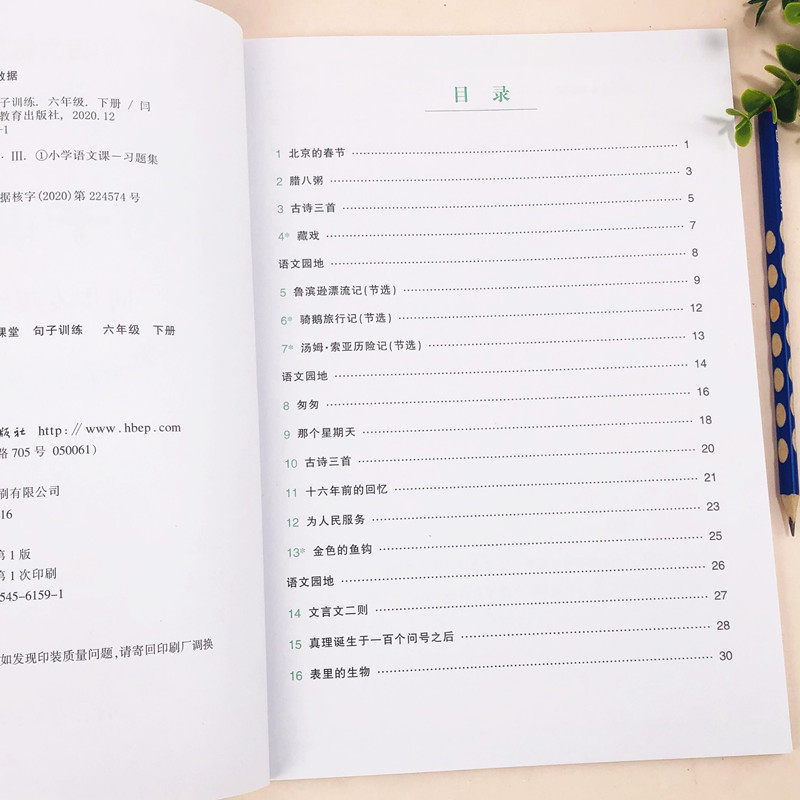 数据
子训练. 六年级. 下册 / 闫
教育出版社, 2020.12
-1
· Ⅲ. ①小学语文课－习题集
据核字(2020)第 224574 号
课堂 句子训练 六年级 下册
版社 http://www.hbep.com
路 705 号 050061)
刷有限公司
16
第 1 版
第 1 次印刷
545-6159-1
如发现印装质量问题,请寄回印刷厂调换
目 录
1 北京的春节 1
2 腊八粥 3
3 古诗三首 5
4* 藏戏 7
语文园地 8
5 鲁滨逊漂流记(节选) 9
6* 骑鹅旅行记(节选) 12
7* 汤姆·索亚历险记(节选) 13
语文园地 14
8 匆匆 16
9 那个星期天 18
10 古诗三首 20
11 十六年前的回忆 21
12 为人民服务 23
13* 金色的鱼钩 25
语文园地 26
14 文言文二则 27
15 真理诞生于一百个问号之后 28
16 表里的生物 30